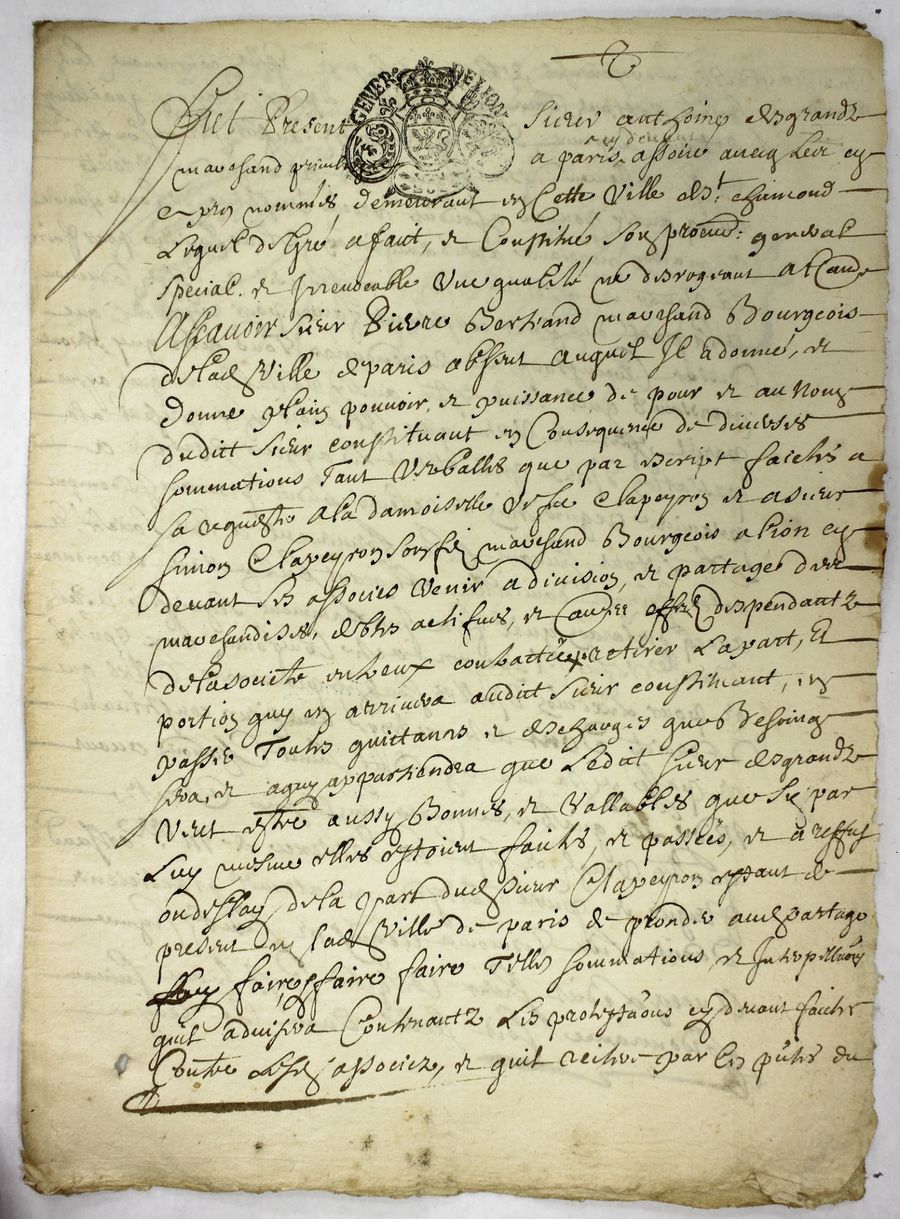 GENER. DE LION
Fut Present Sieur anthoine desgrandz
cydevant
marchand privilegié a paris associé avecq les cy
apres nommés demeurant en Cette Ville de St. chamond
Lequel de gré a fait, et Constitué son procur: general
special. et Irrevocable Une qualité ne desrogeant a l'autre
Assavoir sieur Pierre Bertrand marchand Bourgeois
de lad Ville de paris absent auquel Il a donné, et
donne plain pouvoir, et puissance de pour et au Nom
dudict sieur constituant en Consequence de diverses
sommations Tant Verballes que par escript faictes a
sa requeste a la damoiselle Vefve Clapeyron et a sieur
simon Clapeyron son filz marchand Bourgeois a lion cy
devant ses associés Venir a division, et partage des
marchandises, debtes actifves, et autres effectz despendantz
de la societé entr'eux contractée, retirer La part, Et
portion quy en arrivera audict sieur constituant, en
passer Toutes quittances et descharges que Besoing
sera, et a quy appartiendra que Ledict sieur desgrandz
veut estre aussy Bonnes, et Vallables que sy par
Luy mesme elles estoient faictes, et passées, et a reffus
ou deslay de la part dud sieur Clapeyron estant de
present en lad Ville de paris de proceder aud partage
faire, faire Telles sommations, et Interpellations
quil advisera Contenantz Les protestaons cy devant faictes
Contre Lesd associez, et quil reitere par les pntes du